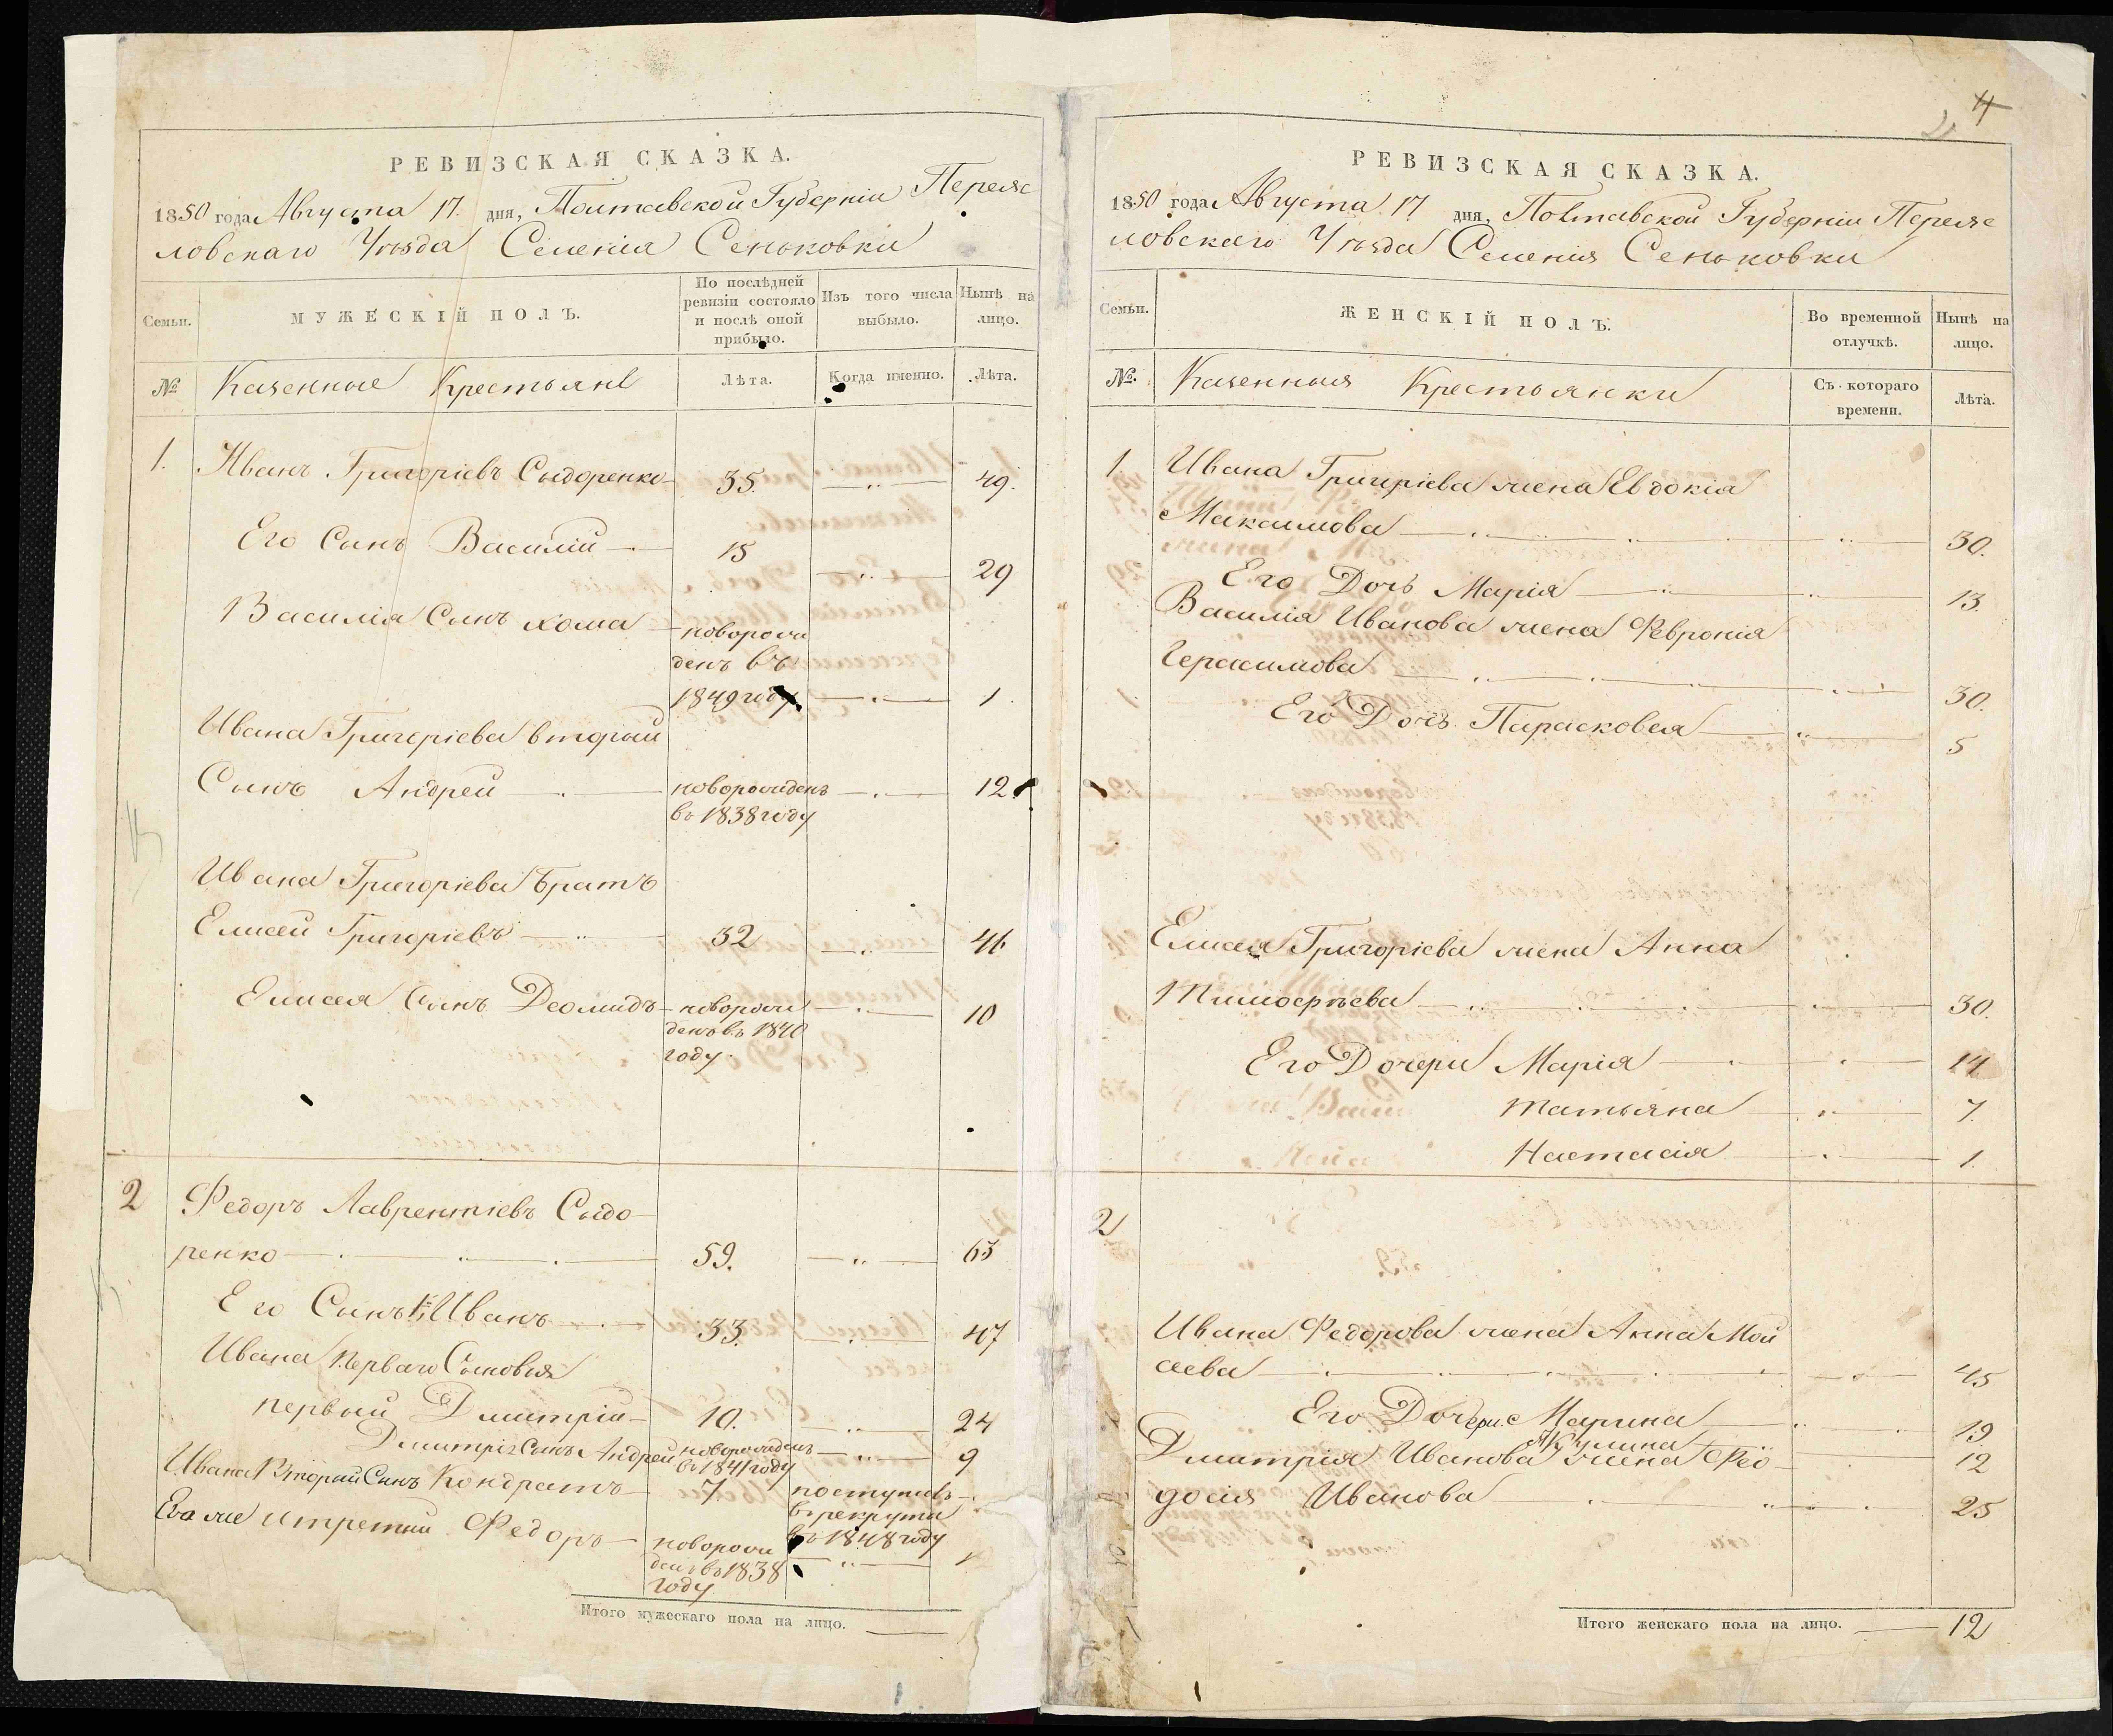 РЕВИЗСКАЯ СКАЗКА.
1850 года Августа 17. дня, Полтавской Губерніи Переяс
ловскаго Уѣзда Селенія Сеньковки
Семьи.
МУЖЕСКІЙ ПОЛЪ.
По послѣдней ревизіи состояло и послѣ оной прибыло.
Изъ того числа выбыло.
Нынѣ на лицо.
№
Казенные Крестьяне
Лѣта.
Когда именно.
Лѣта.
1. Иванъ Григоріевъ Сыдоренко 35. 49.
Его Сынъ Василій 15 29
Василія Сынъ Хома новорож
денъ въ
1849 году 1
Ивана Григоріева вторый
Сынъ Андрей новорожденъ 12
въ 1838 году
Ивана Григоріева Братъ
Елисей Григоріевъ 32 46
Елисея Сынъ Деомидъ новорож 10
денъ въ 1840
году
2 Федоръ Лаврентіевъ Сыдо
ренко 59. 63
Его Сынъ Иванъ 33. 47
Ивана перваго Сыновья
первый Дмитрій 10. 24
Дмитрія Сынъ Андрей новорожденъ 9
въ 1841 году
Ивана Вторый Сынъ Кондратъ 7. поступилъ
в рекруты
въ 1848 году
Его же и третій Федоръ новорож
денъ въ 1838
году
Итого мужескаго пола на лицо.
4
2
РЕВИЗСКАЯ СКАЗКА.
1850 года Августа 17 дня, Полтавской Губерніи Переяс
ловскаго Уѣзда Селенія Сеньковки
Семьи.
ЖЕНСКІЙ ПОЛЪ.
Во временной отлучкѣ.
Нынѣ на лицо.
№.
Казенныя Крестьянки
Съ котораго времени.
Лѣта.
1. Ивана Григоріева жена Евдокія
Максимова 30.
Его Дочь Марія 13.
Василія Иванова жена Февронія
Герасимова 30.
Его Дочь Парасковея 5
Елисея Григоріева жена Анна
Тимофеева 30.
Его Дочери Марія 14
Татьяна 7.
Настасія 1.
2
Ивана Федорова жена Анна Мой
сева 45
Его Дочери Марина 19
Акулина 12
Дмитрія Иванова жена Фео
досія Иванова 25
Итого женскаго пола на лицо. 12